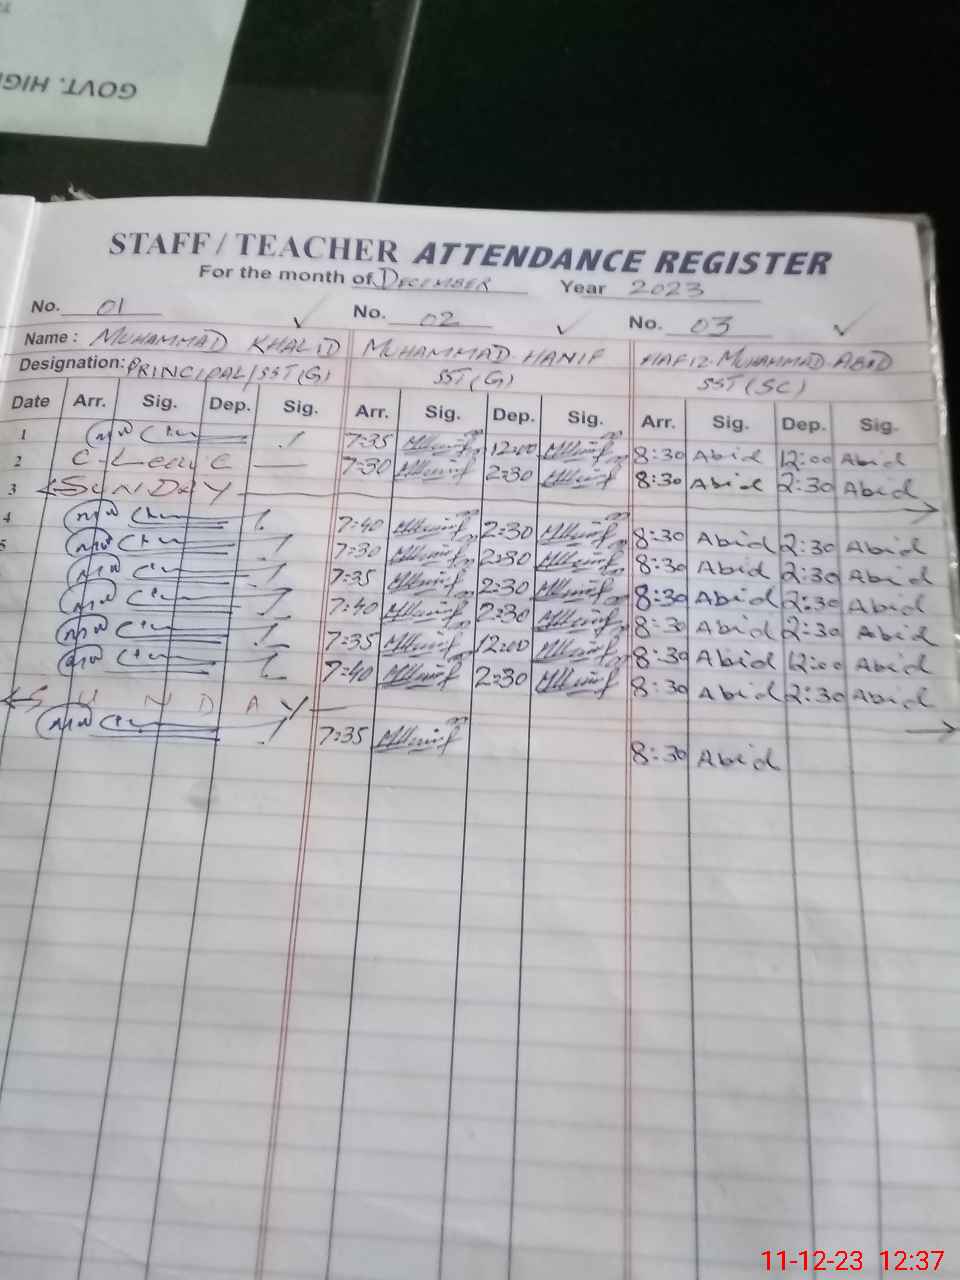 GOVT. HIG
STAFF / TEACHER ATTENDANCE REGISTER
For the month of DECEMBER Year 2023
No. 01 No. 02 No. 03
Name : MUHAMMAD KHALID MUHAMMAD HANIF HAFIZ MUHAMMAD ABID
Designation: PRINCIPAL/SST(G) SST(G) SST(SC)
Date Arr. Sig. Dep. Sig. Arr. Sig. Dep. Sig. Arr. Sig. Dep. Sig.
1 7:35 12:00 8:30 Abid 12:00 Abid
2 C-Leave 7:30 2:30 8:30 Abid 2:30 Abid
3 SUNDAY
4 7:40 2:30 8:30 Abid 2:30 Abid
5 7:30 2:30 8:30 Abid 2:30 Abid
7:35 2:30 8:30 Abid 2:30 Abid
7:40 2:30 8:30 Abid 2:30 Abid
7:35 12:00 8:30 Abid 12:00 Abid
7:40 2:30 8:30 Abid 2:30 Abid
S U N D A Y
7:35 8:30 Abid
11-12-23 12:37